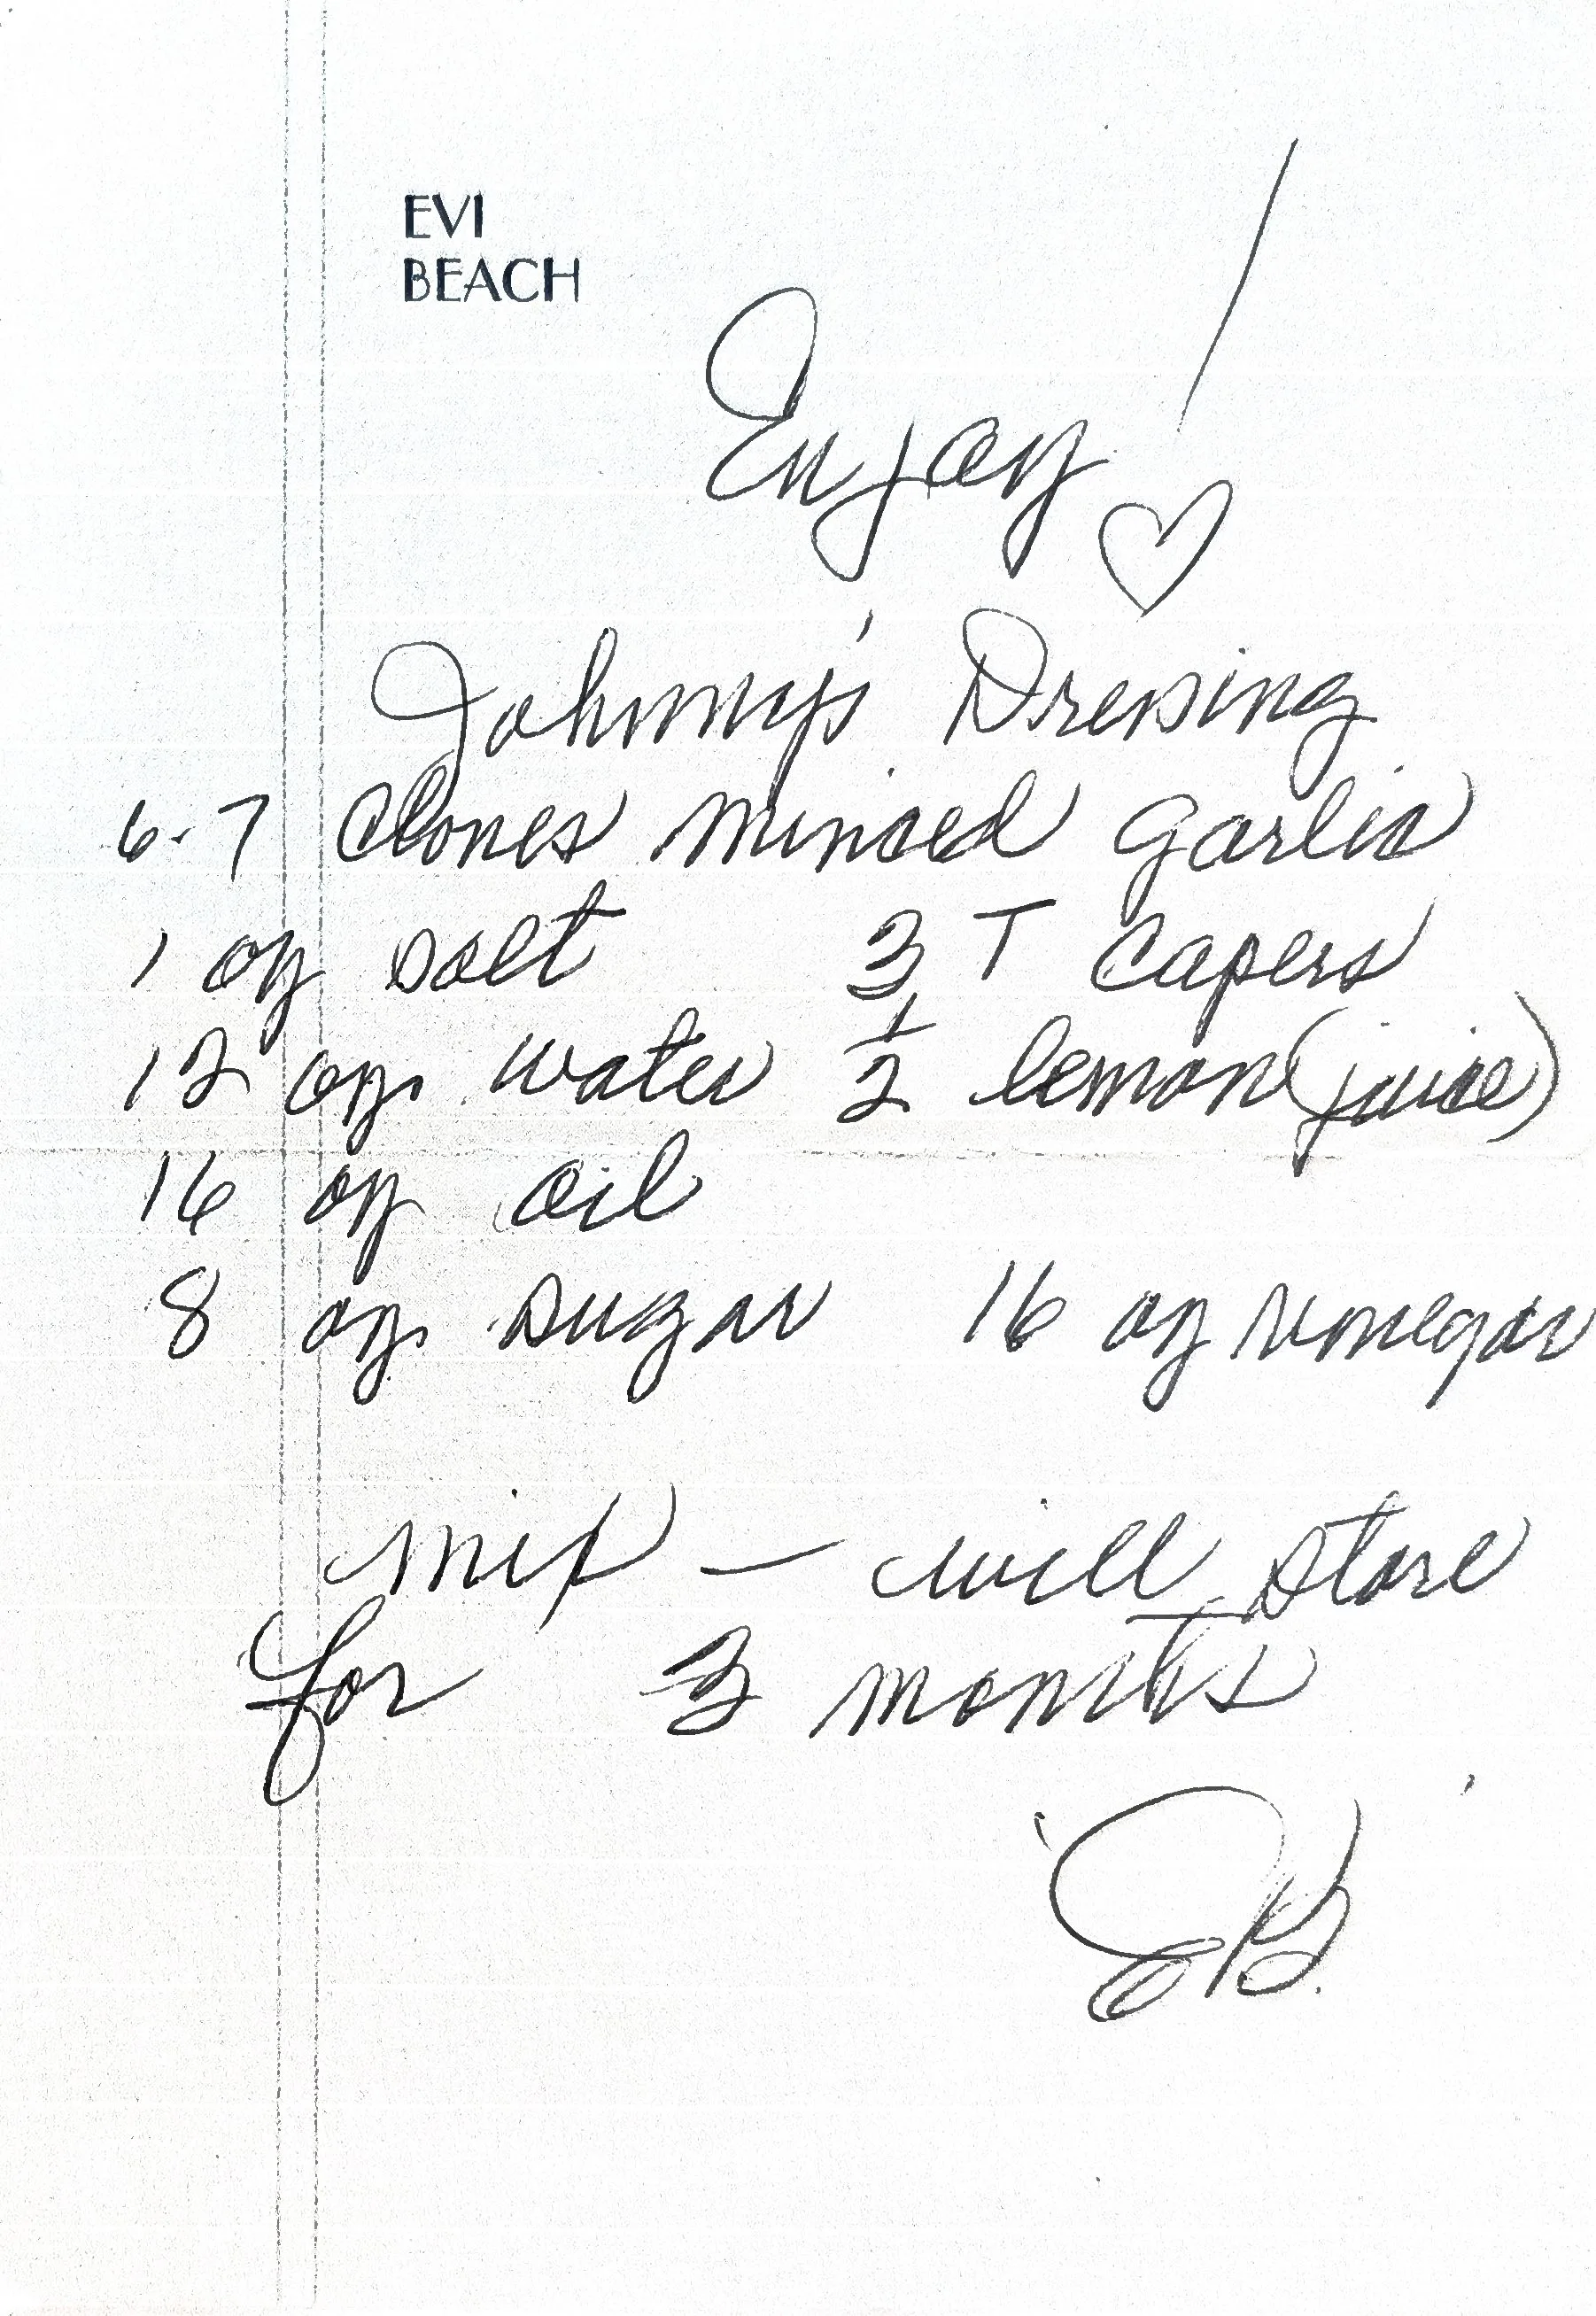 EVI
BEACH
Enjoy! ♡
Johnny's Dressing
6-7 Cloves minced garlic
1 oz salt 3 T capers
12 oz. water 1/2 lemon (juice)
16 oz oil
8 oz. sugar 16 oz vinegar
mix – will store
for 3 months
EB.